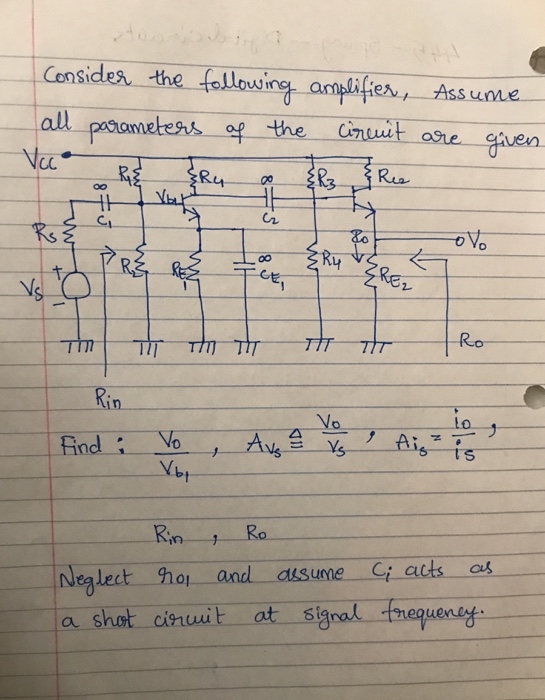 Consider the following amplifier, Assume
all parameters of the circuit are given
Vcc
R1 R4 ∞ R3 Rc2
∞ Vb1
C1 C2
Rs io Vo
R2 RE1 ∞ CE1 R4 RE2
+
Vs
-
Ro
Rin
Find : Vo/Vb1 , Avs ≜ Vo/Vs , Ais = io/is ,
Rin , Ro
Neglect ro1 and assume Ci acts as
a short circuit at signal frequency.